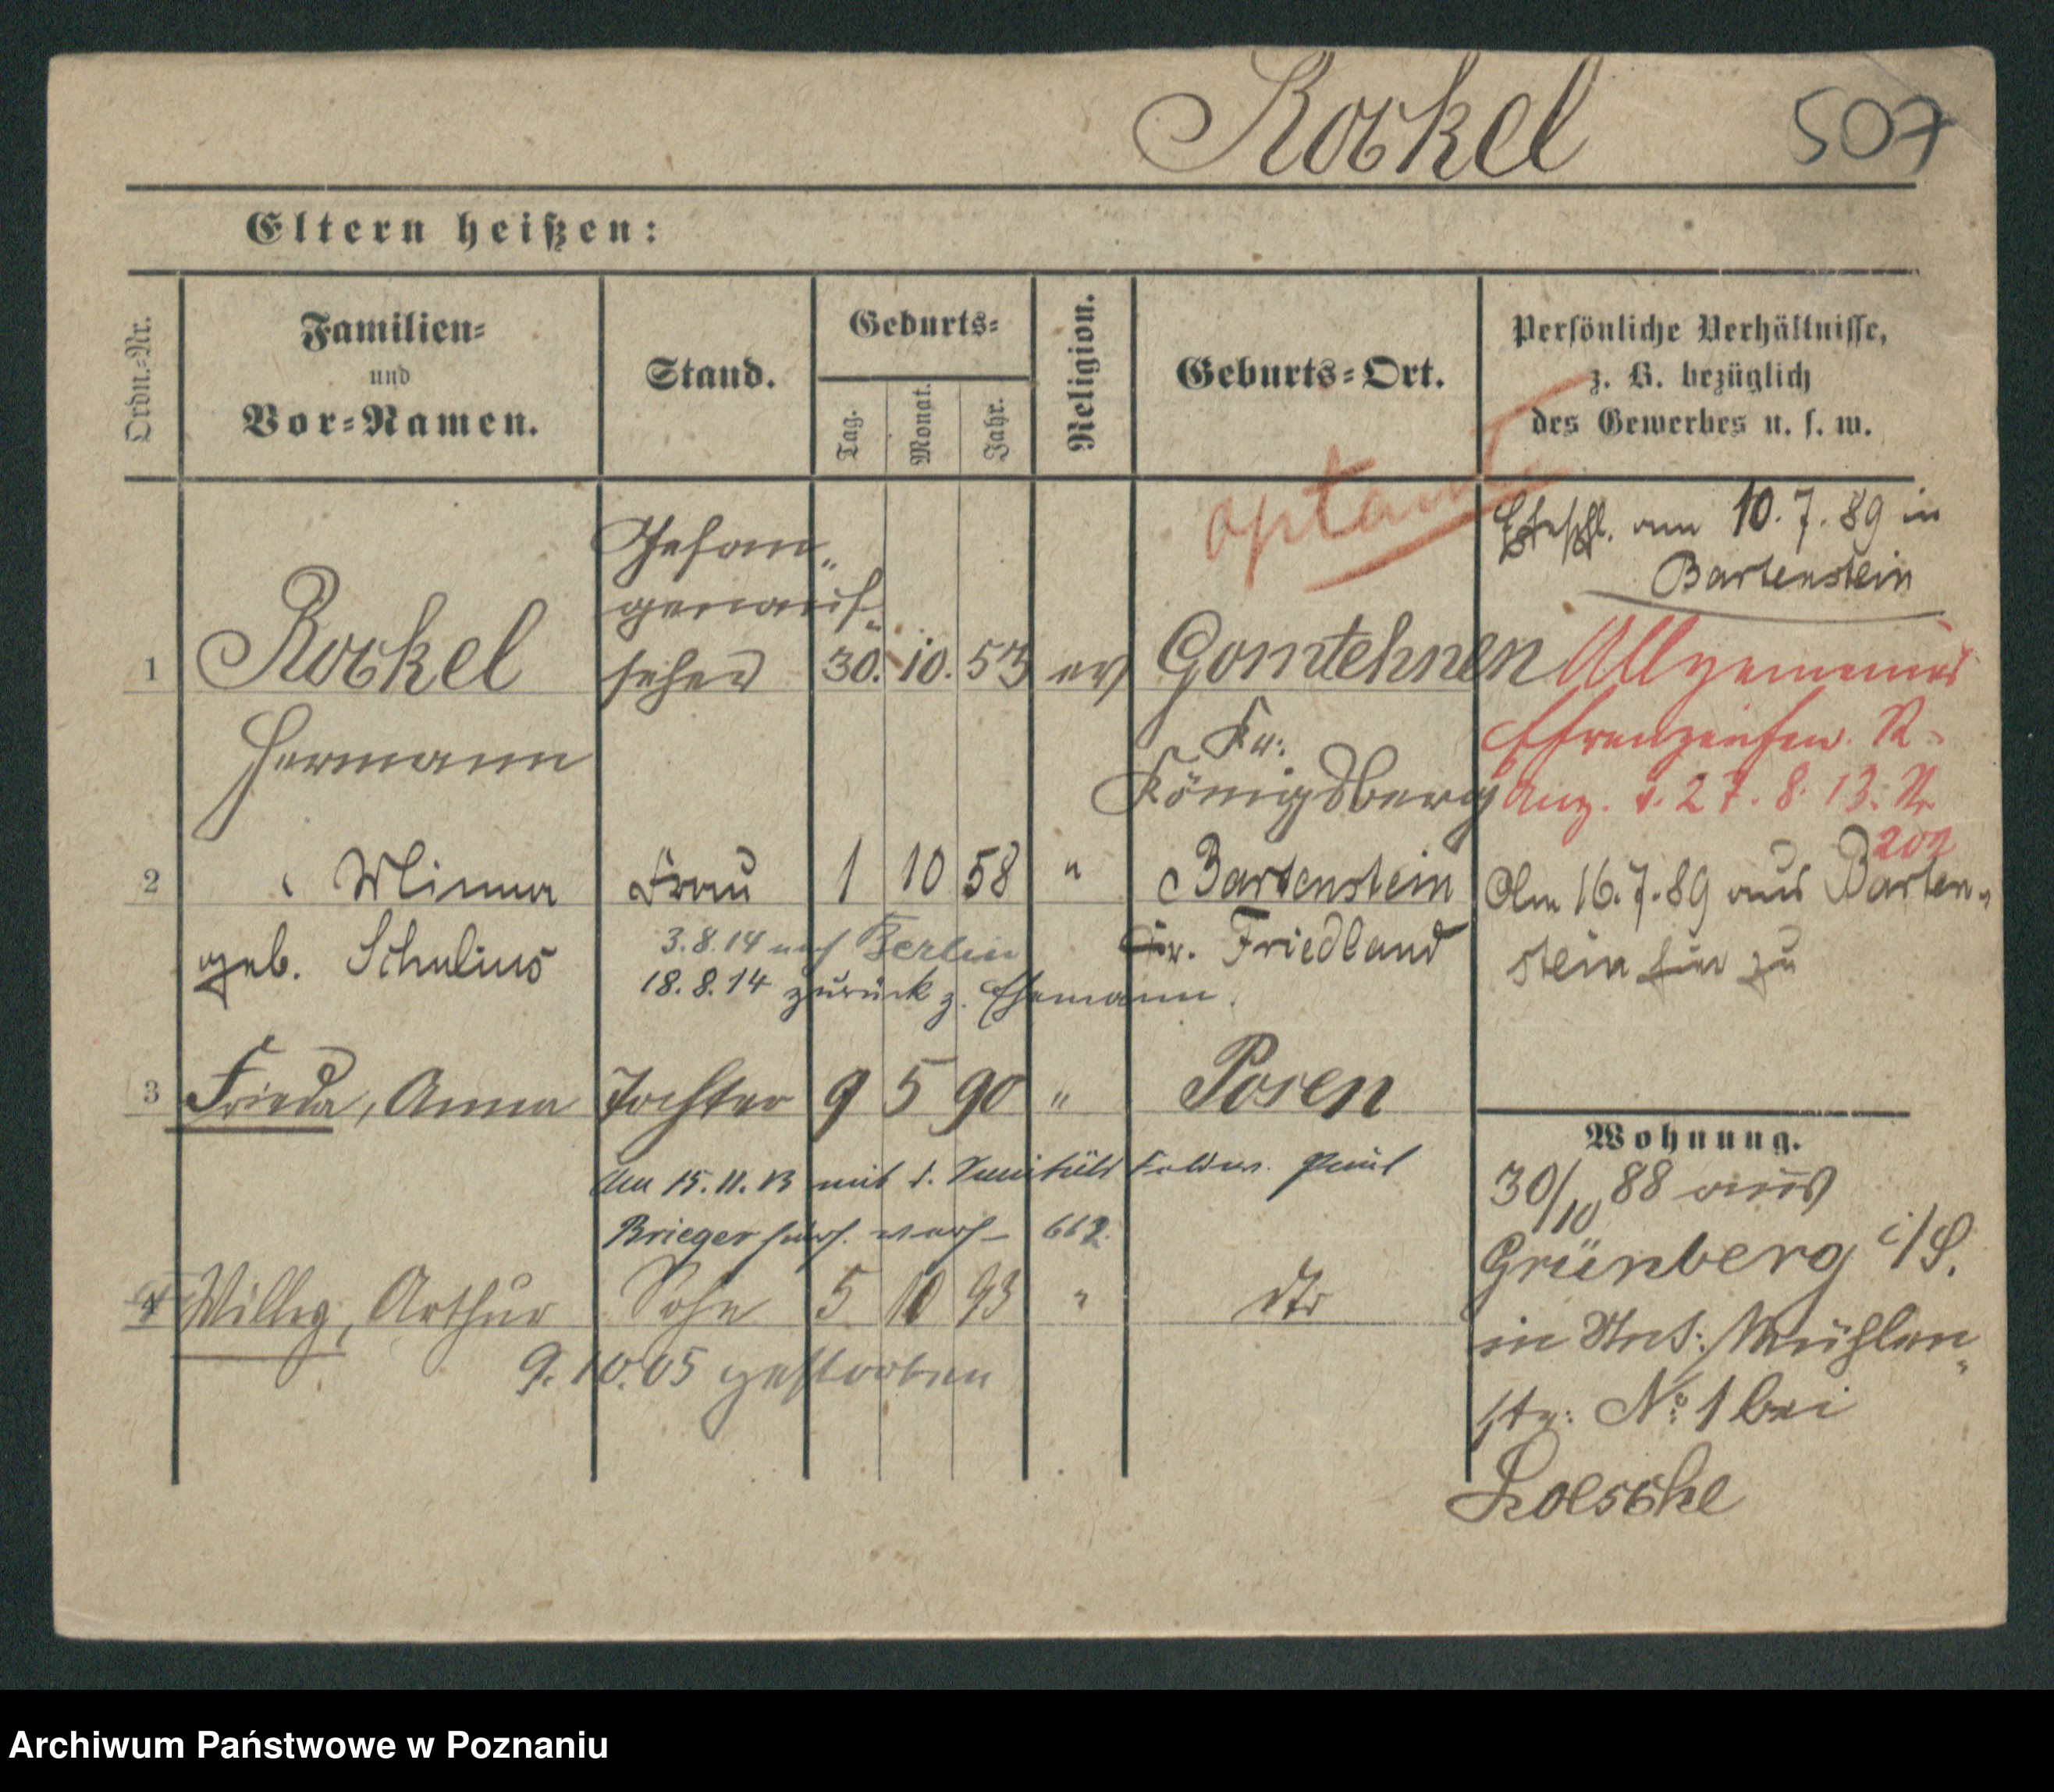 Rockel 507
Eltern heißen:
Ordn.-Nr.
Familien-
und
Vor-Namen.
Stand.
Geburts-
Tag.
Monat.
Jahr.
Religion.
Geburts-Ort.
Persönliche Verhältnisse,
z. B. bezüglich
des Gewerbes u. s. w.
optant
1 Rockel
Hermann
Gefan-
genauf-
seher
30. 10. 53 ev
Gomtehnen
Kr:
Königsberg
Eheschl. am 10.7.89 in
Bartenstein
Allgemeines
Ehrenzeichen. R-
Anz. v. 27. 8. 13. Nr
202
2 " Minna Frau 1 10 58 " Bartenstein
geb. Schulius Kr. Friedland
3.8.14 nach Berlin
18.8.14 zurück z. Ehemann.
Am 16.7.89 aus Barten-
stein hier zu
3 Frieda, Anna Tochter 9 5 90 " Posen
Am 15.11.13 mit d. Paul
Brieger verh. 662
4 Willy, Arthur Sohn 5 10 93 " dto
9.10.05 gestorben
Wohnung.
30/10 88 aus
Grünberg i/S.
in Mühlen-
str: No 1 bei
Loeschke
Archiwum Państwowe w Poznaniu